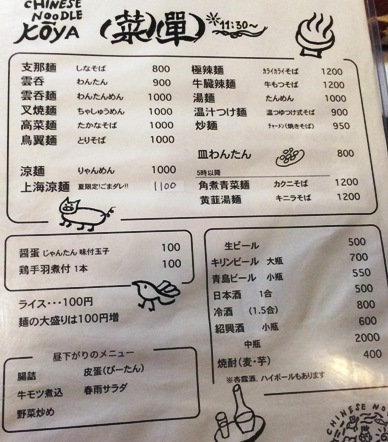 CHINESE
NOODLE
KOYA
(菜單)
※11:30〜
支那麺 しなそば 800
雲呑 わんたん 900
雲呑麺 わんたんめん 1000
叉焼麺 ちゃしゅうめん 1000
高菜麺 たかなそば 1000
鳥翼麺 とりそば 1000
涼麺 りゃんめん 1000
上海涼麺 夏限定!ごまダレ!! 1100
極辣麺 カライカライそば 1200
牛臓辣麺 牛もつそば 1200
湯麺 たんめん 1000
温汁つけ麺 温つゆつけ式そば 900
炒麺 チャーメン(焼きそば) 950
皿わんたん 800
5時以降
角煮青菜麺 カクニそば 1200
黄韮湯麺 キニラそば 1200
醤蛋 じゃんたん 味付玉子 100
鶏手羽煮付 1本 100
ライス・・・100円
麺の大盛りは100円増
昼下がりのメニュー
腸詰 皮蛋(ぴーたん)
牛モツ煮込 春雨サラダ
野菜炒め
生ビール 500
キリンビール 大瓶 700
青島ビール 小瓶 550
日本酒 1合 500
冷酒 (1.5合) 800
紹興酒 小瓶 600
中瓶 2000
焼酎(麦・芋) 400
※杏露酒、ハイボールもあります
CHINESE NOODLE